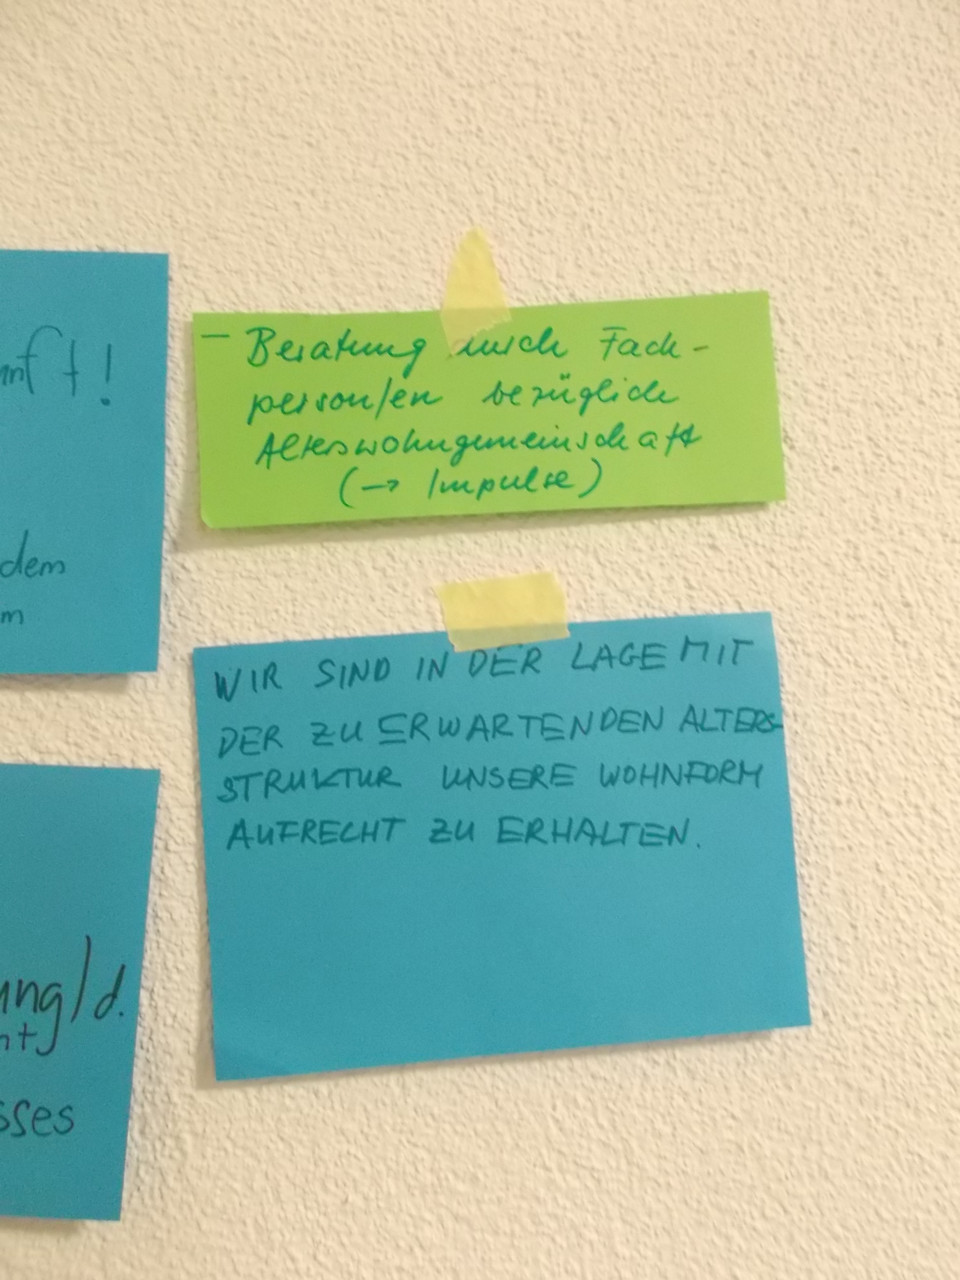 – Beratung durch Fach-
person/en bezüglich
Alterswohngemeinschaft
(→ Impulse)
WIR SIND IN DER LAGE MIT
DER ZU ERWARTENDEN ALTERS-
STRUKTUR UNSERE WOHNFORM
AUFRECHT ZU ERHALTEN.
dem